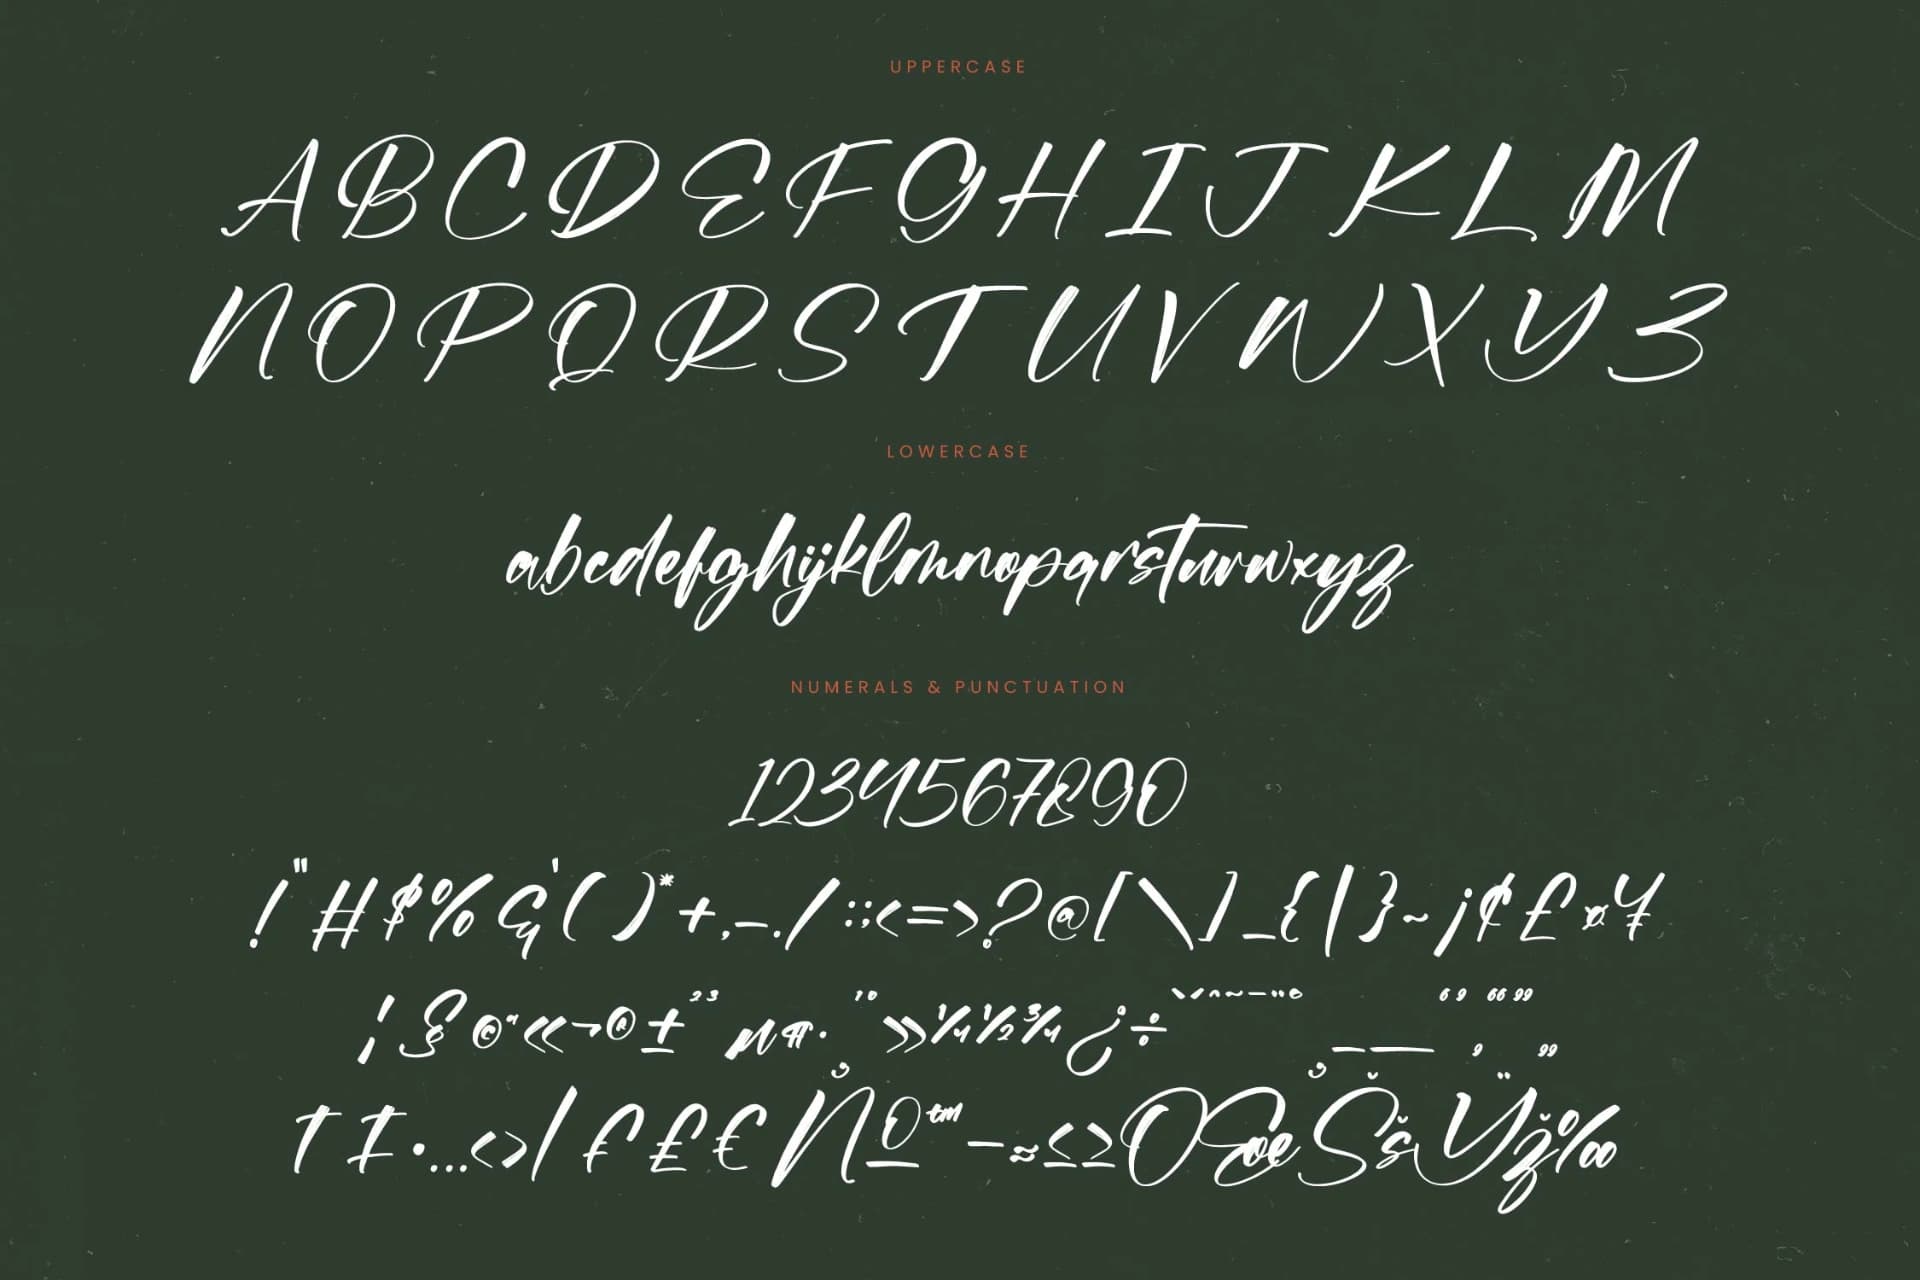 UPPERCASE
ABCDEFGHIJKLM
NOPQRSTUVWXYZ
LOWERCASE
abcdefghijklmnopqrstuvwxyz
NUMERALS & PUNCTUATION
1234567890
!"#$%&'()*+,-./:;<=>?@[\]_{|}~¡¢£¤¥
¦§©ª«¬®±²³µ¶·¸¹º»¼½¾¿÷ˇ˘ˆ˜¯¨˚¸–—‘’‚“”„
†‡•…‹›⁄₣₤€№™−≈≤≥ŒœŠšŸž‰